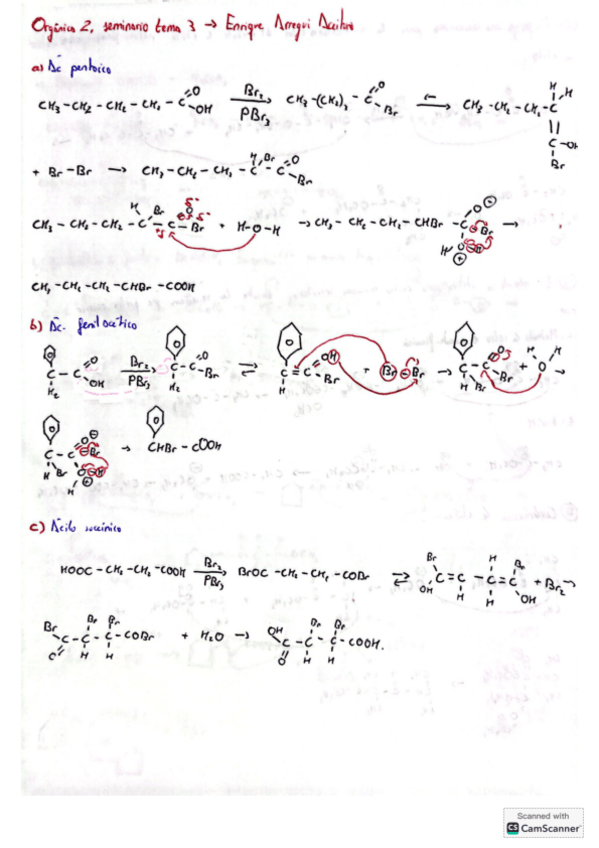 Orgánica 2, seminario tema 3 → Enrique Arregui
a) Ác pentoico
CH3 - CH2 - CH2 - CH2 - C =O OH Br2 PBr3 CH3 - (CH2)3 - C =O Br ⟷ CH3 - CH2 - CH2 - C H H = C - OH Br
+ Br - Br → CH3 - CH2 - CH2 - C H Br - C =O Br
CH3 - CH2 - CH2 - C H Br - C =O δ- Br δ+ + H-O-H → CH3 - CH2 - CH2 - CHBr - C O⊖ Br O H H ⊕ →
CH3 - CH2 - CH2 - CHBr - COOH
b) Ác. fenilacético
C H2 - C =O OH Br2 PBr3 C H2 - C =O Br ⇌ C H = C OH Br + Br - Br → C H Br - C =O Br + H O H →
C H Br - C O⊖ Br O H H ⊕ → CHBr - COOH
c) Ácido succínico
HOOC - CH2 - CH2 - COOH Br2 PBr3 BrOC - CH2 - CH2 - COBr ⇌ Br OH C = C H - C H = C Br OH + Br2 →
Br O C - C Br H - C Br H - COBr + H2O → OH O C - C Br H - C Br H - COOH.
Scanned with
CS CamScanner